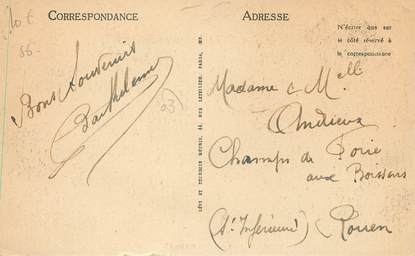 CORRESPONDANCE
ADRESSE
N'écrire que sur
le côté réservé à
la correspondance
Bons Souvenirs
Barthelemy
LÉVY ET NEURDEIN RÉUNIS, 44, RUE LETELLIER, PARIS, XV.
Madame & Melle
Andrieux
Champs de Foire
aux Boissons
(Se Inférieure) Rouen